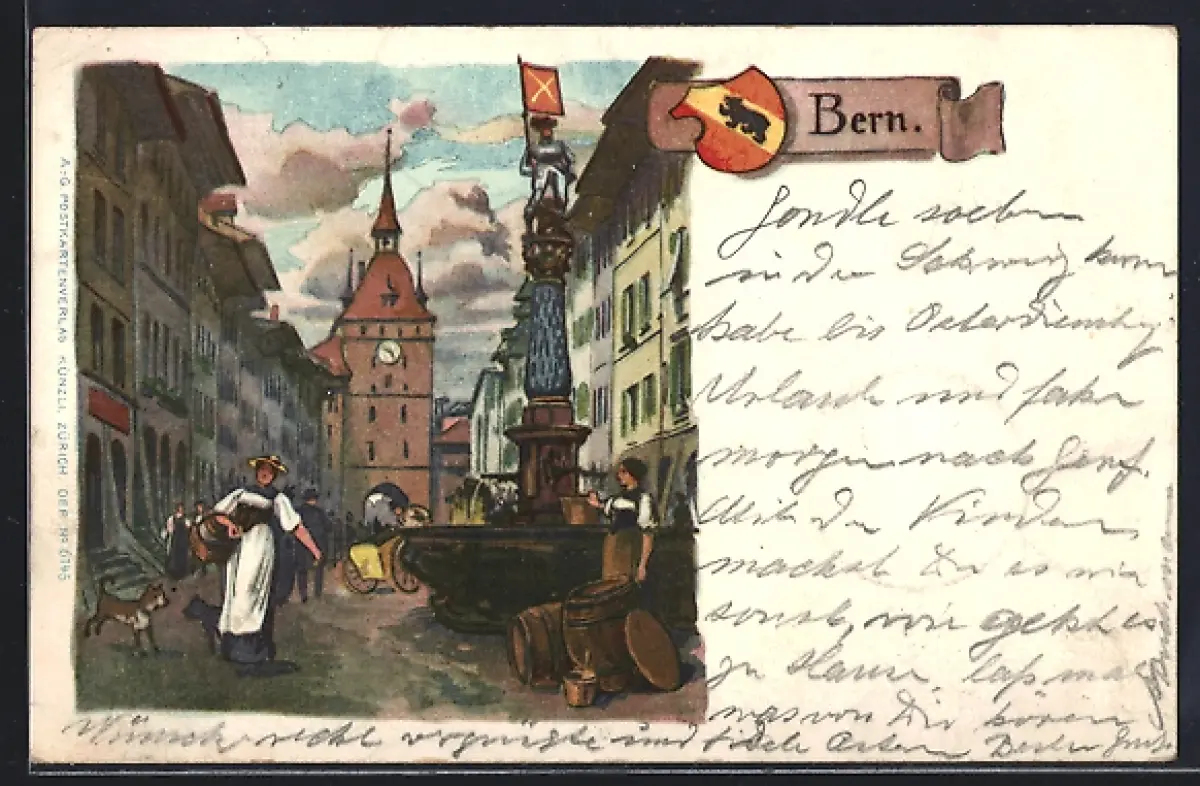 Bern.
A.-G. POSTKARTENVERLAG KÜNZLI, ZÜRICH. DEP. Nº 6145
soeben
in der Schweiz herum
habe bis Osterdienstag
Urlaub und fahre
morgen nach Genf.
Mit den Kindern
machst Du es wie
sonst, wie geht es
zu Hause laß mal
was von Dir hören
Wünsche recht vergnügte und fidele Ostern Besten Gruß